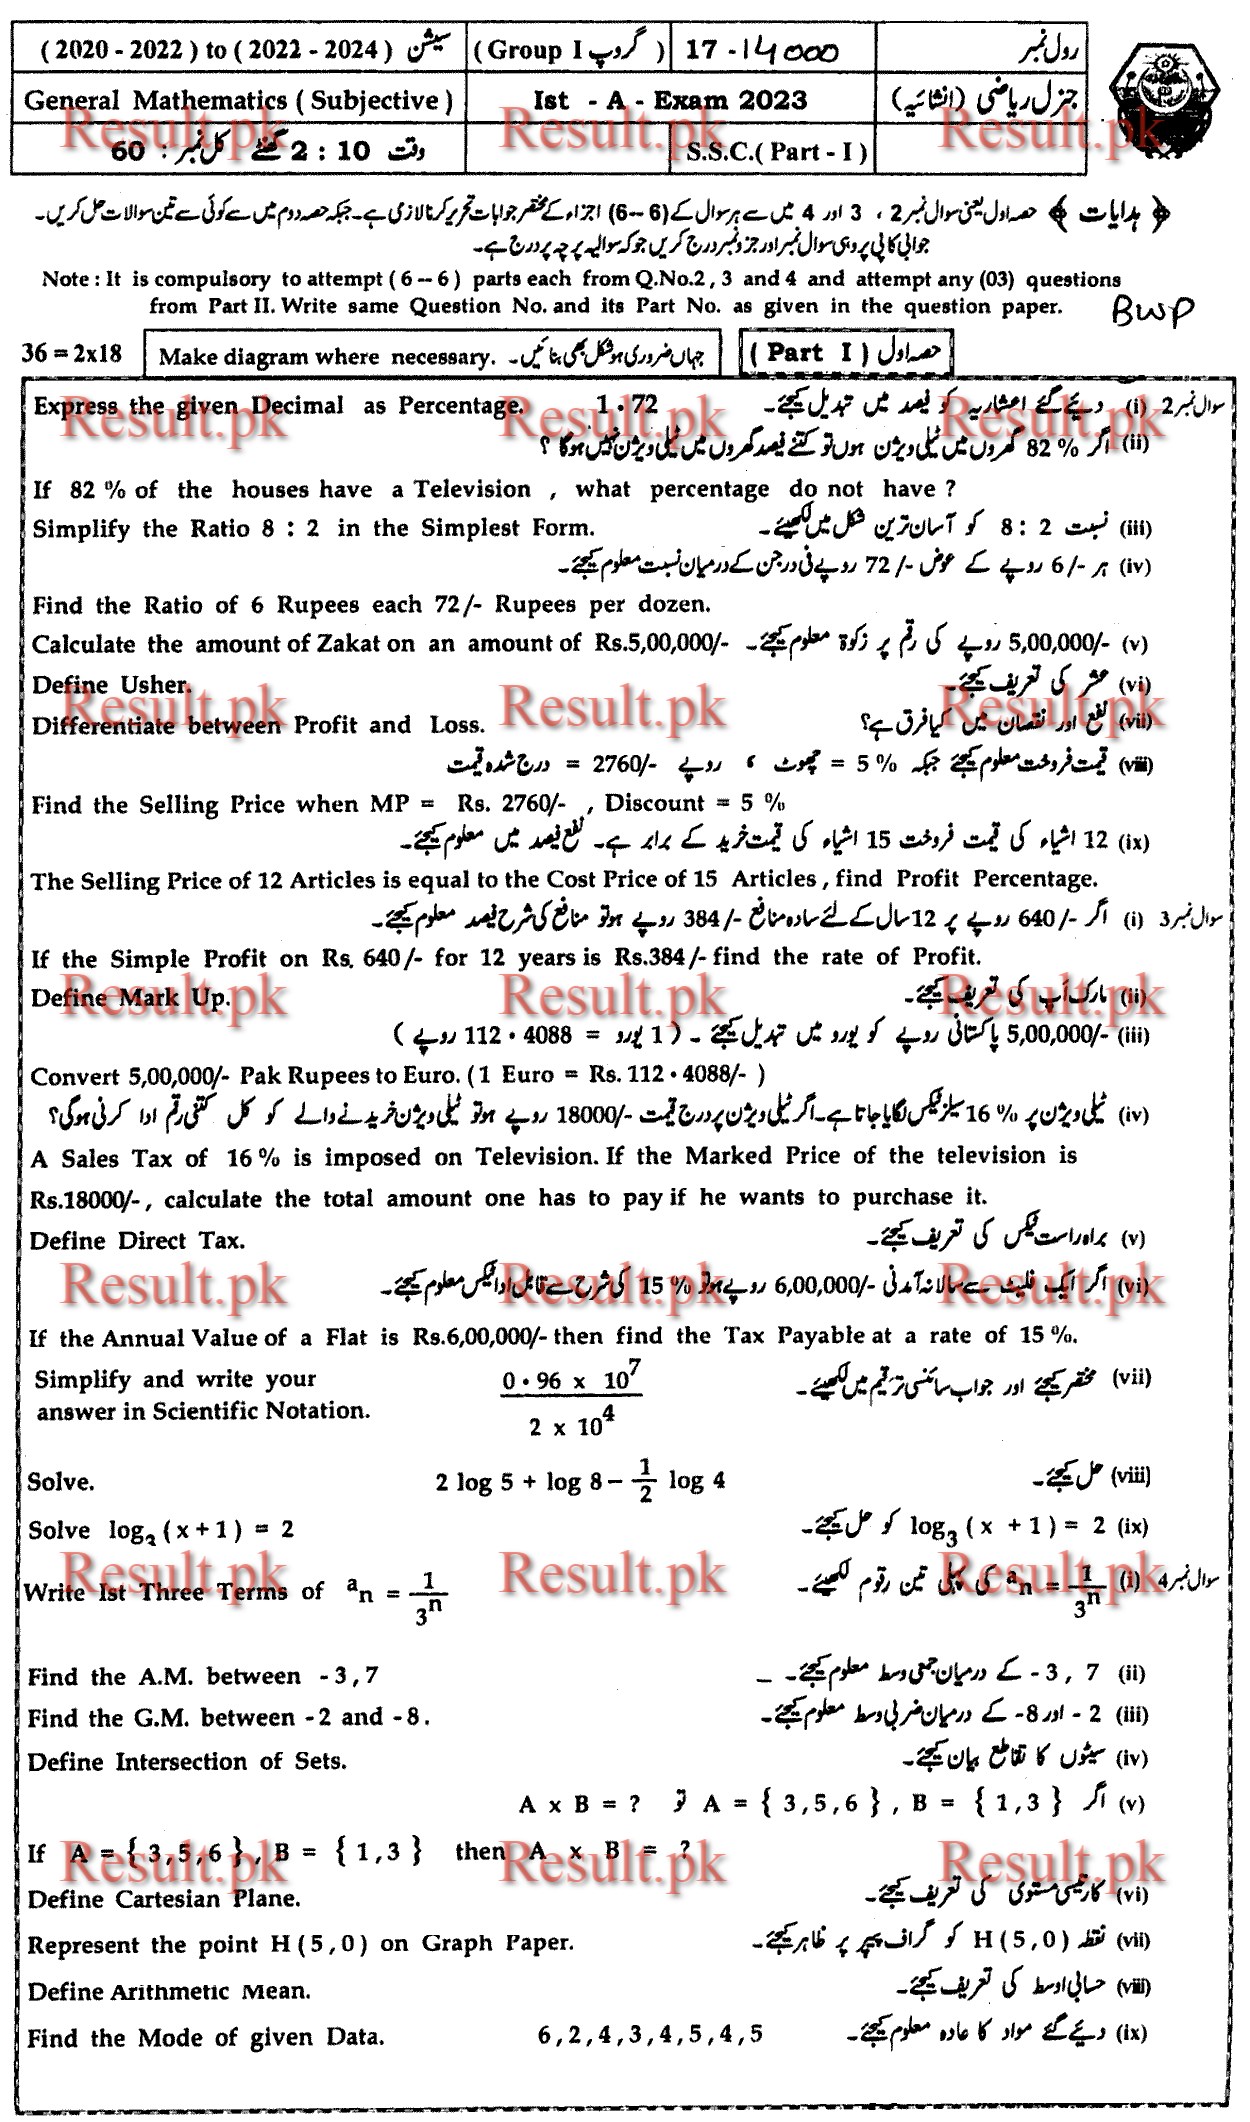 ( 2020 - 2022 ) to ( 2022 - 2024 ) سیشن
( Group I گروپ )
17 - 14000
رول نمبر
General Mathematics ( Subjective )
Ist - A - Exam 2023
جنرل ریاضی (انشائیہ)
وقت 2 : 10 گھنٹے کل نمبر : 60
S.S.C.( Part - I )
﴿ ہدایات ﴾ حصہ اول یعنی سوال نمبر 2 ، 3 اور 4 میں سے ہر سوال کے (6 – 6) اجزاء کے مختصر جوابات تحریر کرنا لازمی ہے۔ جبکہ حصہ دوم میں سے کوئی سے تین سوالات حل کریں۔
جوابی کاپی پر وہی سوال نمبر اور جز و نمبر درج کریں جو کہ سوالیہ پرچہ پر درج ہے۔
Note : It is compulsory to attempt ( 6 – 6 ) parts each from Q.No.2 , 3 and 4 and attempt any (03) questions
from Part II. Write same Question No. and its Part No. as given in the question paper.
BWP
36 = 2x18
Make diagram where necessary. جہاں ضروری ہو شکل بھی بنائیں۔
( Part I ) حصہ اول
Express the given Decimal as Percentage. 1 · 72 سوال نمبر 2 (i) دیئے گئے اعشاریہ کو فیصد میں تبدیل کیجئے۔
(ii) اگر % 82 گھروں میں ٹیلی ویژن ہوں تو کتنے فیصد گھروں میں ٹیلی ویژن نہیں ہوگا ؟
If 82 % of the houses have a Television , what percentage do not have ?
Simplify the Ratio 8 : 2 in the Simplest Form. (iii) نسبت 2 : 8 کو آسان ترین شکل میں لکھیئے۔
(iv) ہر -/6 روپے کے عوض -/72 روپے فی درجن کے درمیان نسبت معلوم کیجئے۔
Find the Ratio of 6 Rupees each 72/- Rupees per dozen.
Calculate the amount of Zakat on an amount of Rs.5,00,000/- (v) 5,00,000/- روپے کی رقم پر زکوٰۃ معلوم کیجئے۔
Define Usher. (vi) عشر کی تعریف کیجئے۔
Differentiate between Profit and Loss. (vii) نفع اور نقصان میں کیا فرق ہے؟
(viii) قیمت فروخت معلوم کیجئے جبکہ % 5 = چھوٹ ، روپے -/2760 = درج شدہ قیمت
Find the Selling Price when MP = Rs. 2760/- , Discount = 5 %
(ix) 12 اشیاء کی قیمت فروخت 15 اشیاء کی قیمت خرید کے برابر ہے۔ نفع فیصد میں معلوم کیجئے۔
The Selling Price of 12 Articles is equal to the Cost Price of 15 Articles , find Profit Percentage.
سوال نمبر 3 (i) اگر -/640 روپے پر 12 سال کے لئے سادہ منافع -/384 روپے ہو تو منافع کی شرح فیصد معلوم کیجئے۔
If the Simple Profit on Rs. 640/- for 12 years is Rs.384/- find the rate of Profit.
Define Mark Up. (ii) مارک اَپ کی تعریف کیجئے۔
(iii) 5,00,000/- پاکستانی روپے کو یورو میں تبدیل کیجئے ۔ ( 1 یورو = 112 · 4088 روپے )
Convert 5,00,000/- Pak Rupees to Euro. ( 1 Euro = Rs. 112 · 4088/- )
(iv) ٹیلی ویژن پر % 16 سیلز ٹیکس لگایا جاتا ہے۔ اگر ٹیلی ویژن پر درج قیمت -/18000 روپے ہو تو ٹیلی ویژن خریدنے والے کو کل کتنی رقم ادا کرنی ہوگی؟
A Sales Tax of 16 % is imposed on Television. If the Marked Price of the television is
Rs.18000/- , calculate the total amount one has to pay if he wants to purchase it.
Define Direct Tax. (v) براہ راست ٹیکس کی تعریف کیجئے۔
(vi) اگر ایک فلیٹ سے سالانہ آمدنی -/6,00,000 روپے ہو تو % 15 کی شرح سے قابل ادا ٹیکس معلوم کیجئے۔
If the Annual Value of a Flat is Rs.6,00,000/- then find the Tax Payable at a rate of 15 %.
Simplify and write your answer in Scientific Notation. 0 · 96 x 10^7 / 2 x 10^4 (vii) مختصر کیجئے اور جواب سائنسی ترقیم میں لکھیئے۔
Solve. 2 log 5 + log 8 – 1/2 log 4 (viii) حل کیجئے۔
Solve log₃ ( x + 1 ) = 2 (ix) log₃ ( x + 1 ) = 2 کو حل کیجئے۔
Write Ist Three Terms of aₙ = 1/3ⁿ سوال نمبر 4 (i) aₙ = 1/3ⁿ کی پہلی تین رقوم لکھیئے۔
Find the A.M. between - 3 , 7 (ii) - 3 , 7 کے درمیان جمعی وسط معلوم کیجئے۔
Find the G.M. between - 2 and - 8 . (iii) - 2 اور -8 کے درمیان ضربی وسط معلوم کیجئے۔
Define Intersection of Sets. (iv) سیٹوں کا تقاطع بیان کیجئے۔
(v) اگر A = { 3 , 5 , 6 } , B = { 1 , 3 } تو A x B = ?
If A = { 3 , 5 , 6 } , B = { 1 , 3 } then A x B = ?
Define Cartesian Plane. (vi) کارتیسی مستوی کی تعریف کیجئے۔
Represent the point H ( 5 , 0 ) on Graph Paper. (vii) نقطہ H ( 5 , 0 ) کو گراف پیپر پر ظاہر کیجئے۔
Define Arithmetic Mean. (viii) حسابی اوسط کی تعریف کیجئے۔
Find the Mode of given Data. 6 , 2 , 4 , 3 , 4 , 5 , 4 , 5 (ix) دیئے گئے مواد کا عادہ معلوم کیجئے۔
Result.pk